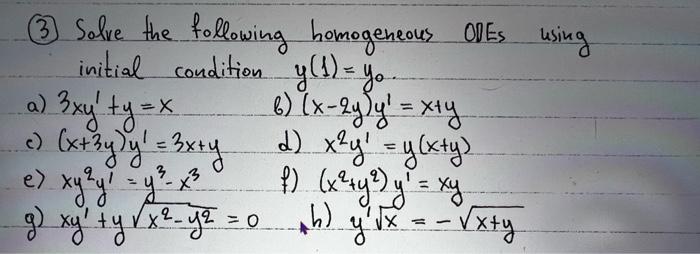 ③ Solve the following homogeneous ODEs using
initial condition y(1) = y₀.
a) 3xy' + y = x b) (x-2y)y' = x+y
c) (x+3y)y' = 3x+y d) x²y' = y(x+y)
e) xy²y' = y³-x³ f) (x²+y²)y' = xy
g) xy' + y√(x²-y²) = 0 h) y'√x = -√(x+y)